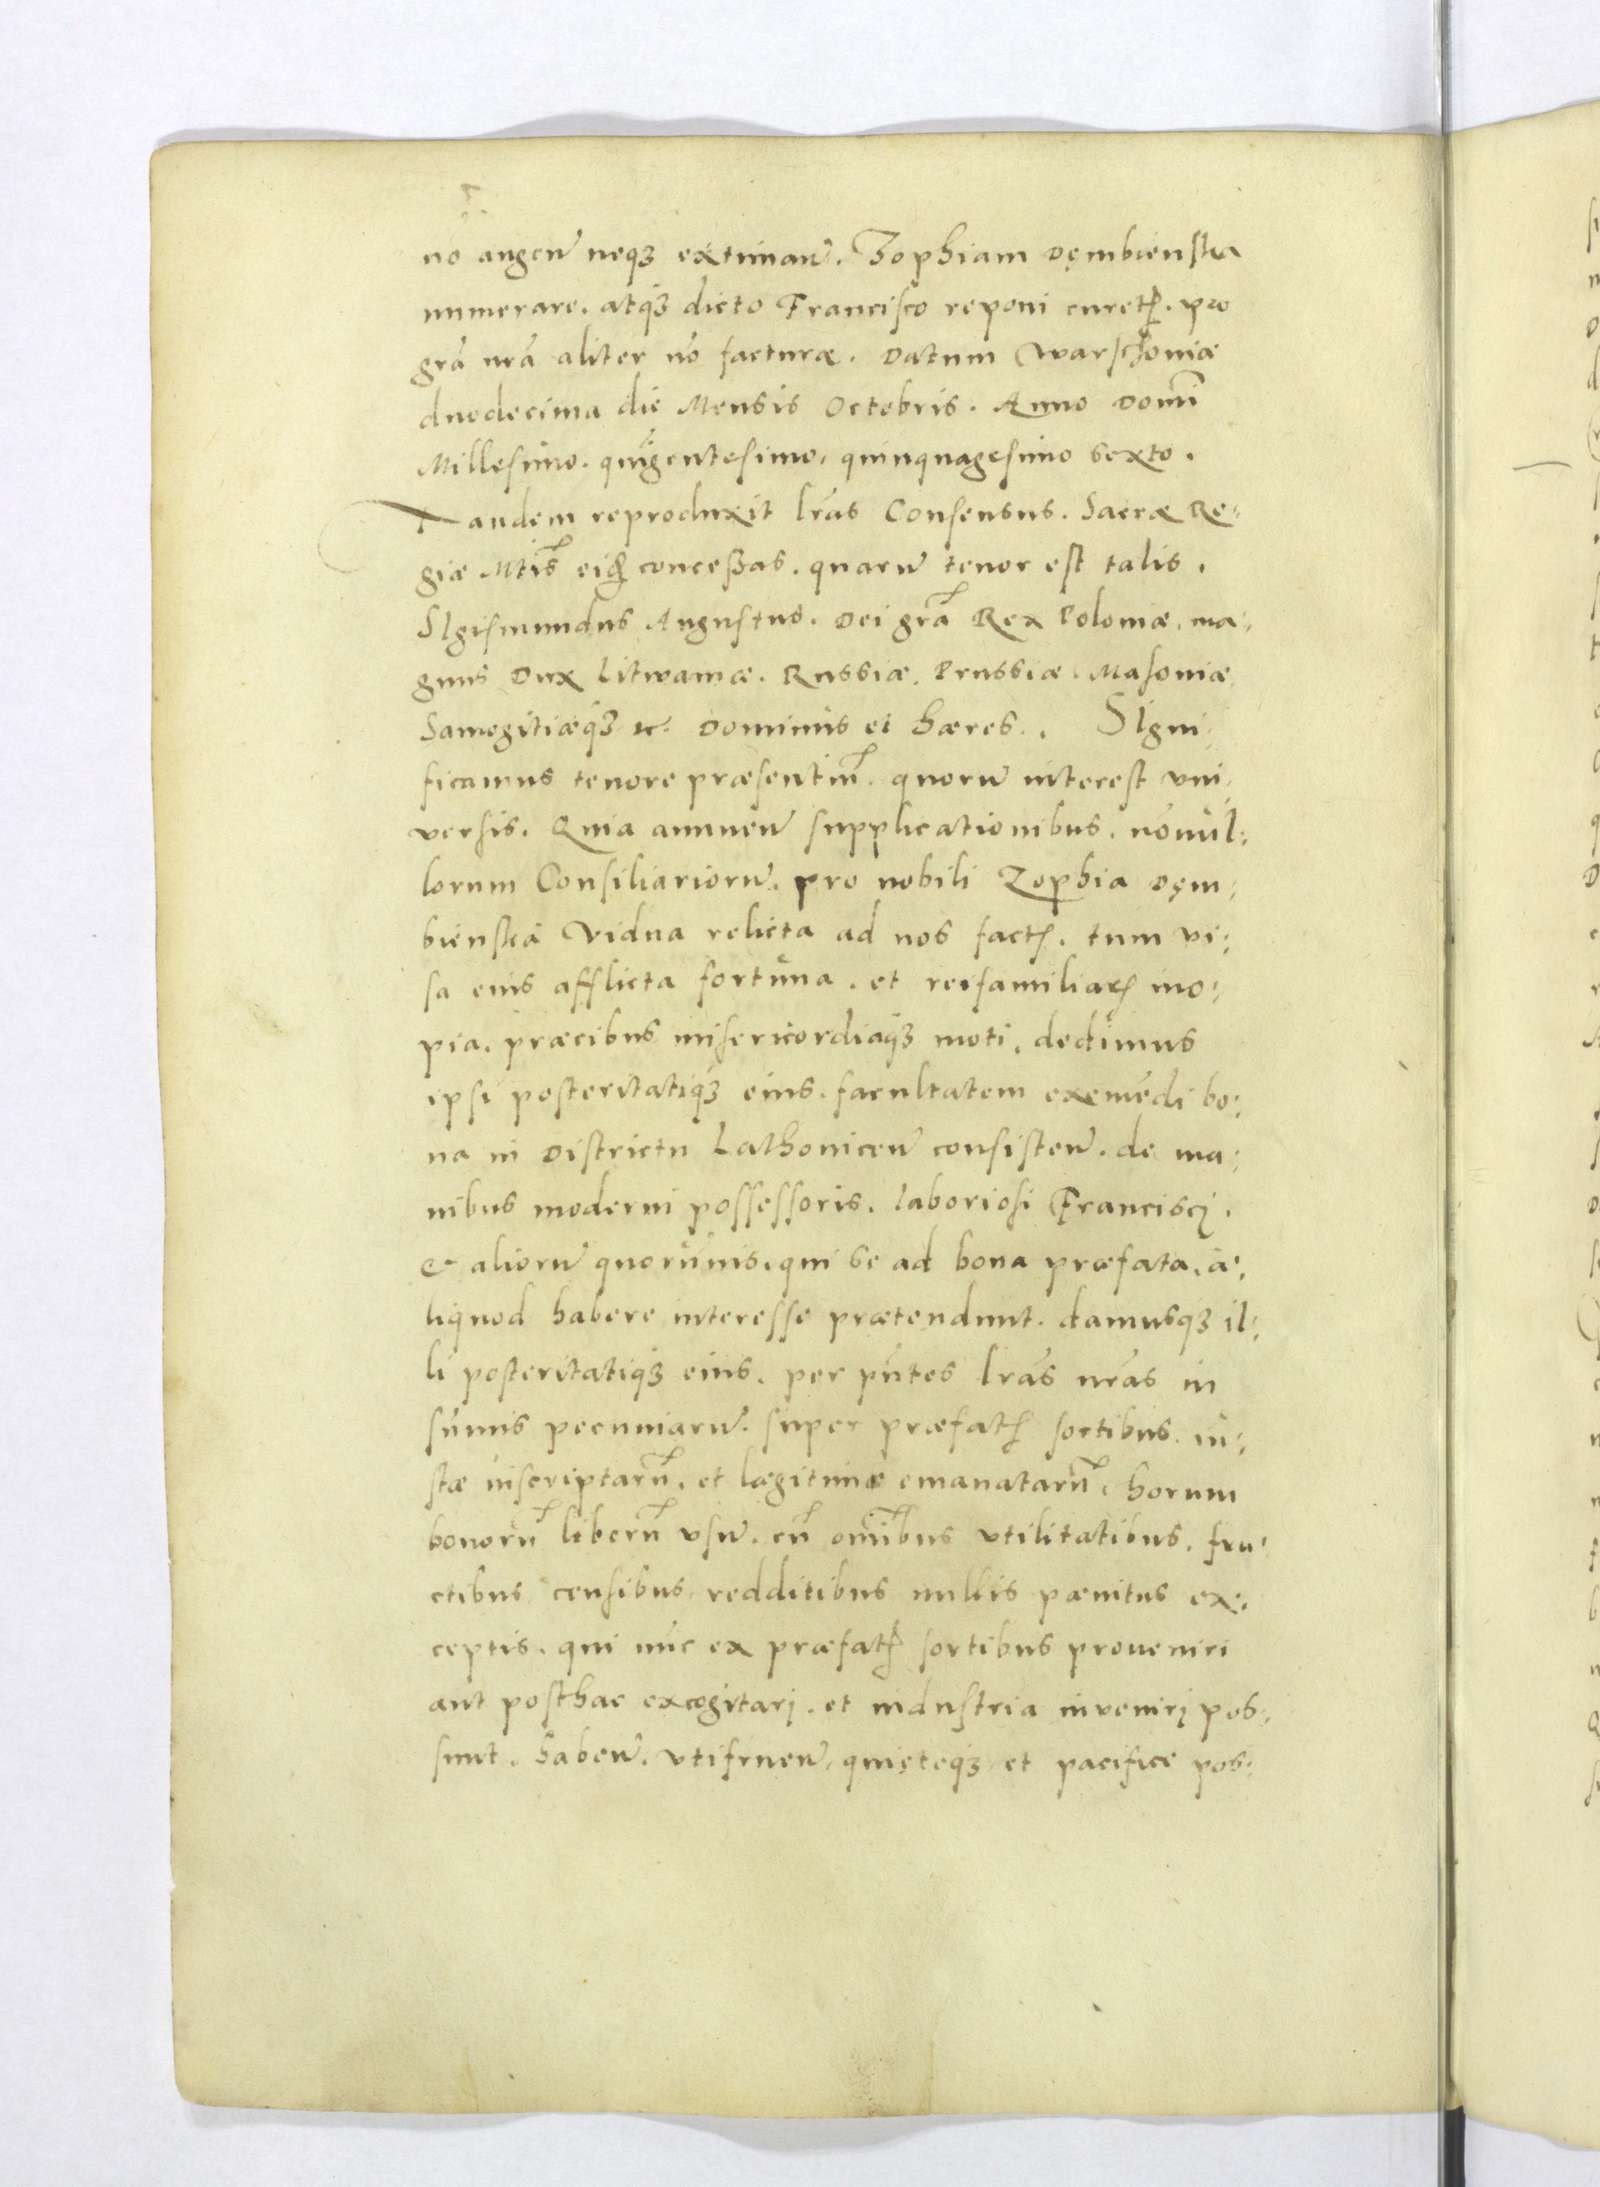 nō angeñ neqꝫ extimañ. Zophiam Dęmbienska
numerare. atqꝫ dicto Francisco reponi curetꝭ. pro
grã nrã aliter nō facturæ. Datum Warschoniæ
duodecima die Mensis Octobris. Anno Domĩ
Millesimo. quĩgentesimo, quinquagesimo sexto.
Tandem reproduxit lrãs Consensus. Sacræ Re-
giæ Mtis concessas. quarũ tenor est talis.
SIgismundus Augustus. Dei grã Rex Poloniæ, ma-
gnus Dux Litwaniæ. Russiæ, Prussiæ. Masoniæ
Samogitiæqꝫ ꝛc. Dominus et hæres. SIgni
ficamus tenore præsentiũ. quorũ interest vni-
versis. Quia annueñ supplicationibus. nōnul-
lorum Consiliariorũ. pro nobili Zophia Dęm-
bienska Vidua relicta ad nos factꝭ. tum vi-
sa eius afflicta fortuna. et reifamiliarꝭ ino-
pia. præcibus misericordiaqꝫ moti. dedimus
ipsi posteritatiqꝫ eius. facultatem exemẽdi bo-
na in Districtu Lathoniceñ consisteñ. de ma-
nibus moderni possessoris. laboriosi Francisci.
& aliorũ quorũuis. qui se ad bona præfata. a-
liquod habere interesse prætendunt. damusqꝫ il-
li posteritatiqꝫ eius. per pñtes lrãs nrãs in
sũmis pecuniarũ. super præfatꝭ sortibus. iu-
stæ inscriptarũ. et lægitimæ emanatarũ. horum
bonorũ liberũ vsũ. cũ omĩbus vtilitatibus. fru-
ctibus censibus redditibus nullis pænitus ex-
ceptis. qui nũc ex præfatꝭ sortibus proueniri
aut posthac excogitari. et industria inveniri pos-
sunt. habeñ. vtifrueñ, quieteqꝫ et pacifice pos-